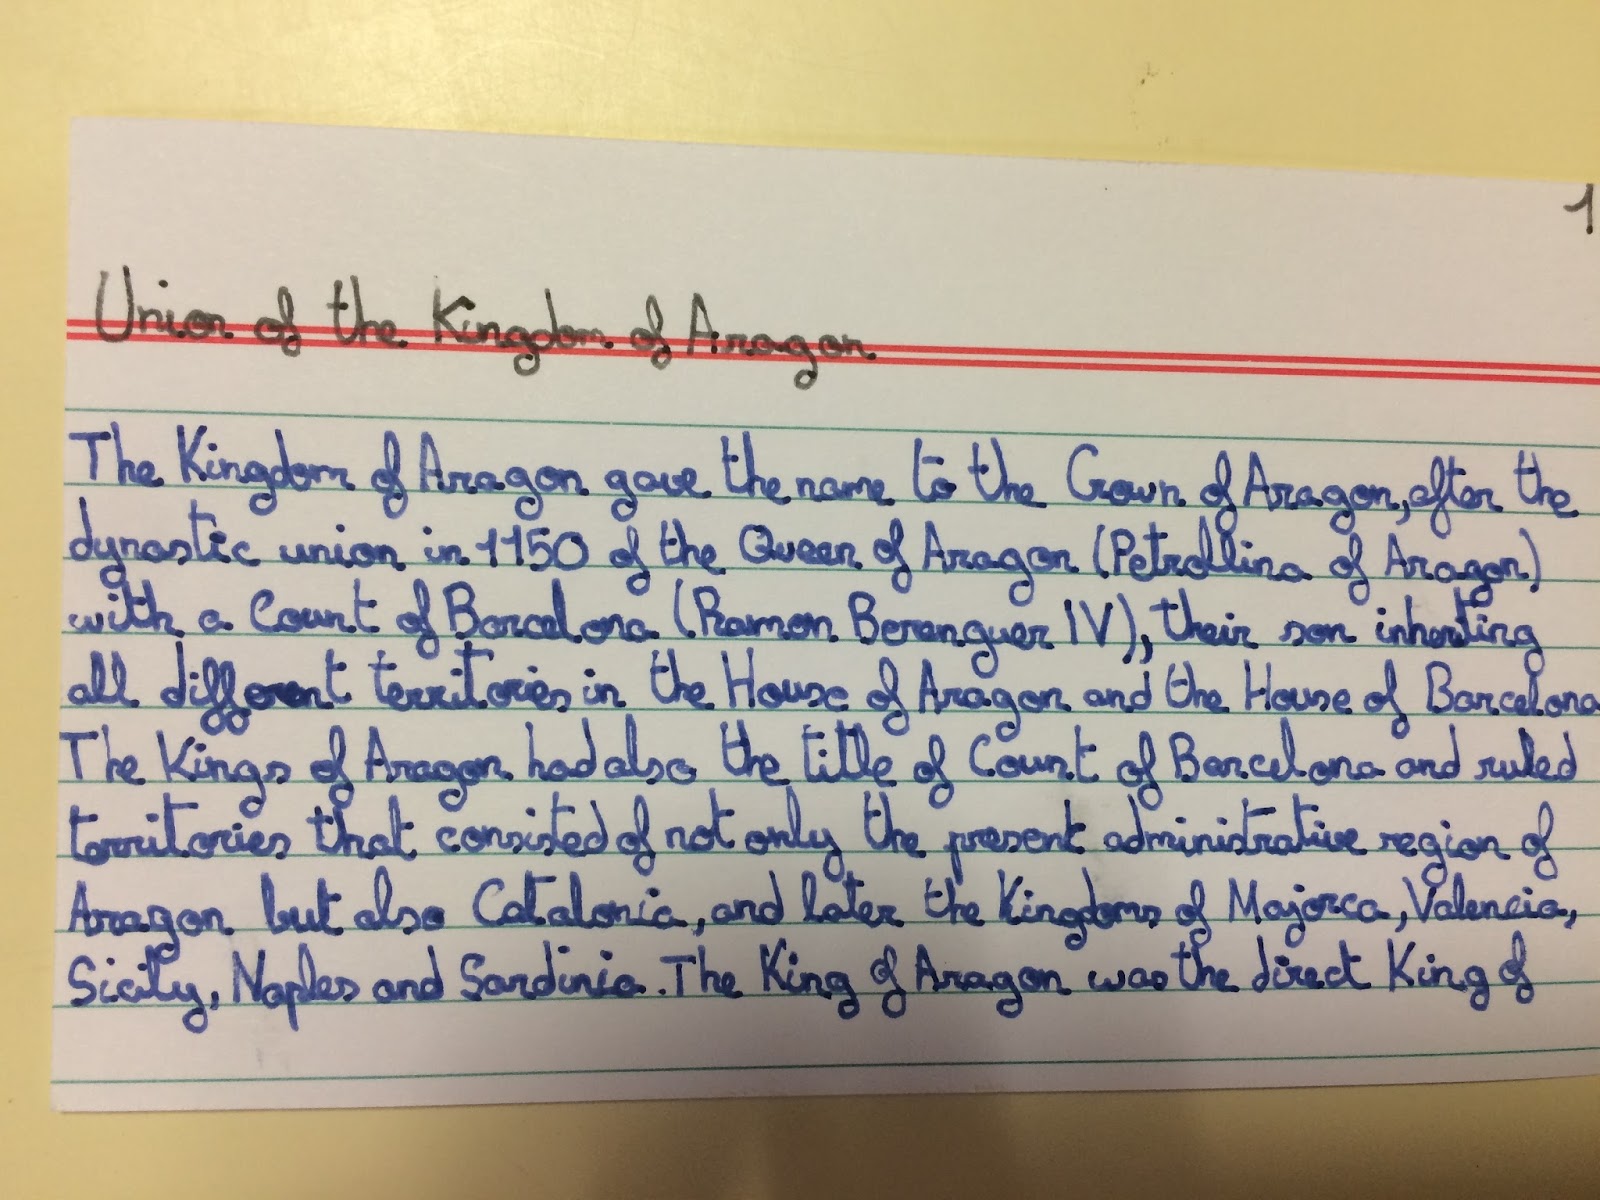 1
Union of the Kingdom of Aragon
The Kingdom of Aragon gave the name to the Crown of Aragon, after the
dynastic union in 1150 of the Queen of Aragon (Petrollina of Aragon)
with a Count of Barcelona (Ramon Berenguer IV), their son inheriting
all different territories in the House of Aragon and the House of Barcelona
The Kings of Aragon had also the title of Count of Barcelona and ruled
territories that consisted of not only the present administrative region of
Aragon but also Catalonia, and later the Kingdoms of Majorca, Valencia,
Sicily, Naples and Sardinia. The King of Aragon was the direct King of